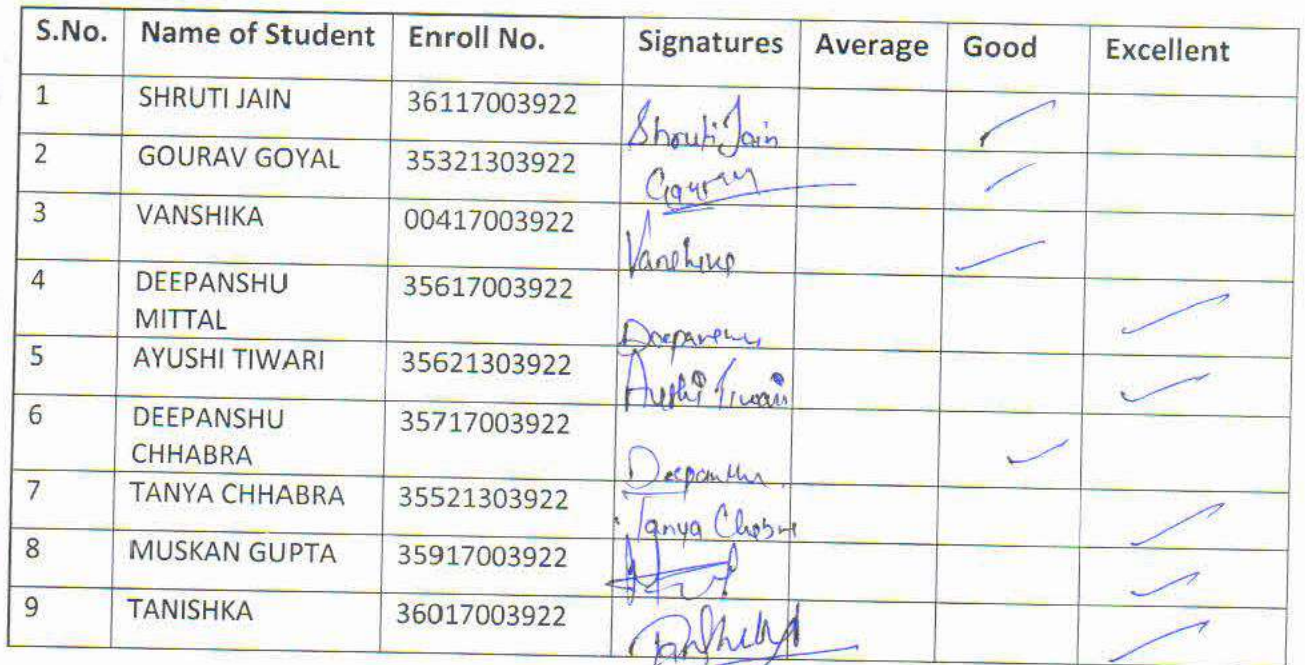 S.No. Name of Student Enroll No. Signatures Average Good Excellent
1 SHRUTI JAIN 36117003922 Shruti Jain ✓
2 GOURAV GOYAL 35321303922 Gourav ✓
3 VANSHIKA 00417003922 Vanshika ✓
4 DEEPANSHU 35617003922 ✓
MITTAL Deepanshu
5 AYUSHI TIWARI 35621303922 Ayushi Tiwari ✓
6 DEEPANSHU 35717003922 ✓
CHHABRA Deepanshu
7 TANYA CHHABRA 35521303922 Tanya Chabra ✓
8 MUSKAN GUPTA 35917003922 ✓
9 TANISHKA 36017003922 ✓